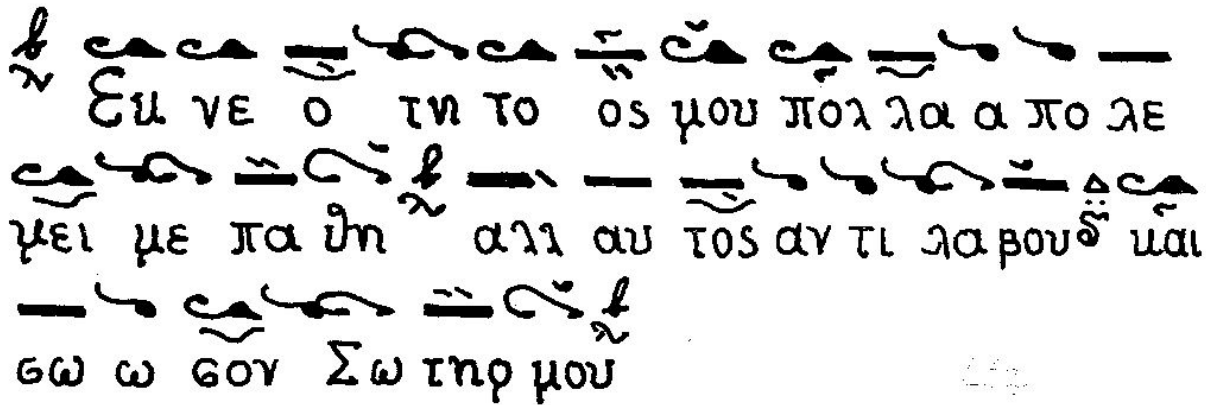 Εκ νε ο τη το ος μου πολ λα α πο λε
μει με πα θη αλλ αυ τος αν τι λα βου και
σω ω σον Σω τηρ μου